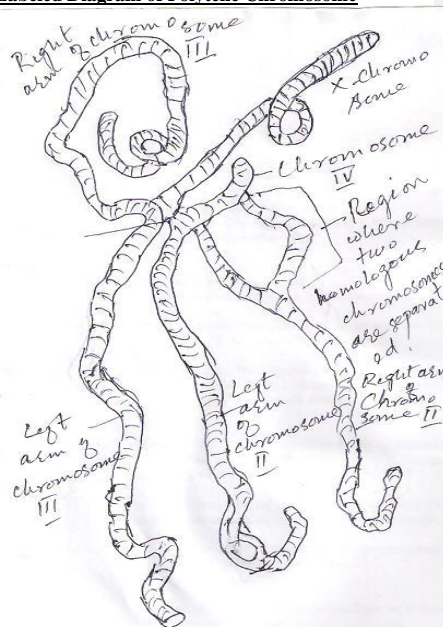 Labelled Diagram of Polytene Chromosome
Right
arm of chromosome
III
X-Chromo
some
Chromosome
IV
Region
where
two
homologous
chromosomes
are separat
ed.
Left
arm
of
chromosome
II
Right arm
of
Chromo
some II
Left
arm of
chromosome
III